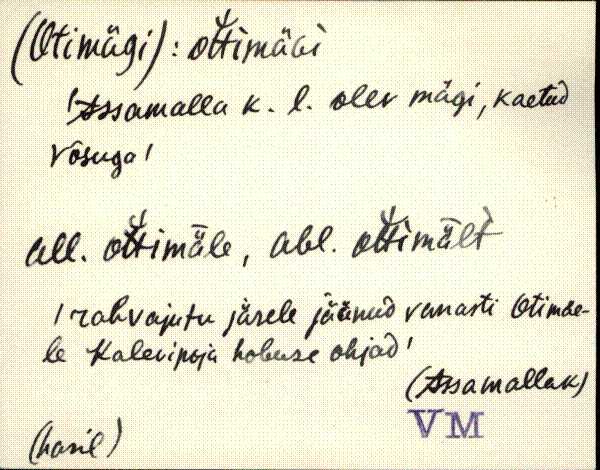 (Otimägi): ottimäɢi
'Assamalla k. l. olev mägi, kaetud
võsuga'
all. ottimäle, abl. ottimält
'rahvajutu järele jäänud vanasti Otimäe-
le Kalevipoja hobuse ohjad'
(Assamalla k)
VM
(haril)